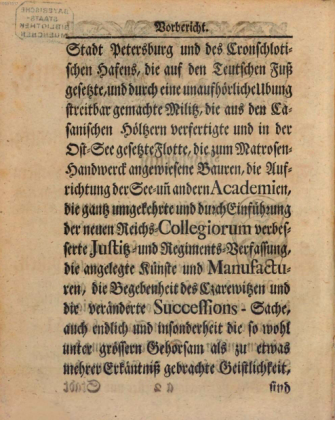 Vorbericht.
Stadt Petersburg und des Cronschloti-
schen Hafens, die auf den Teutschen Fuß
gesetzte, und durch eine unaufhörliche Ubung
streitbar gemachte Militz, die aus den Ca-
sanischen Höltzern verfertigte und in der
Ost-See gesetzte Flotte, die zum Matrosen-
Handwerck angewiesene Bauren, die Auf-
richtung der See-uñ andern Academien,
die gantz umgekehrte und durch Einführung
der neuen Reichs-Collegiorum verbes-
serte Justitz-und Regiments-Verfassung,
die angelegte Künste und Manufactu-
ren, die Begebenheit des Czarewitzen und
die veränderte Successions-Sache,
auch endlich und insonderheit die so wohl
unter grössern Gehorsam als zu etwas
mehrer Erkäntniß gebrachte Geistlichkeit,
sind